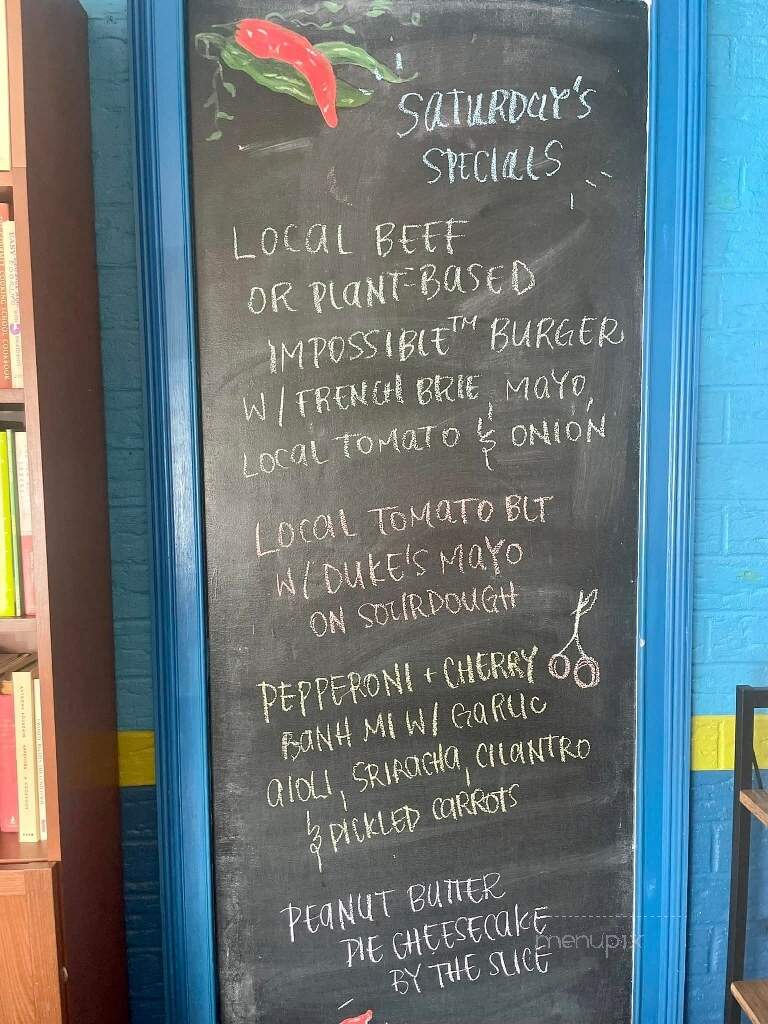 SATURDAY'S
SPECIALS
LOCAL BEEF
OR PLANT-BASED
IMPOSSIBLE™ BURGER
W/ FRENCH BRIE, MAYO,
LOCAL TOMATO & ONION
LOCAL TOMATO BLT
W/ DUKE'S MAYO
ON SOURDOUGH
PEPPERONI + CHERRY
BANH MI W/ GARLIC
AIOLI, SRIRACHA, CILANTRO
& PICKLED CARROTS
PEANUT BUTTER
PIE CHEESECAKE
BY THE SLICE
menupix